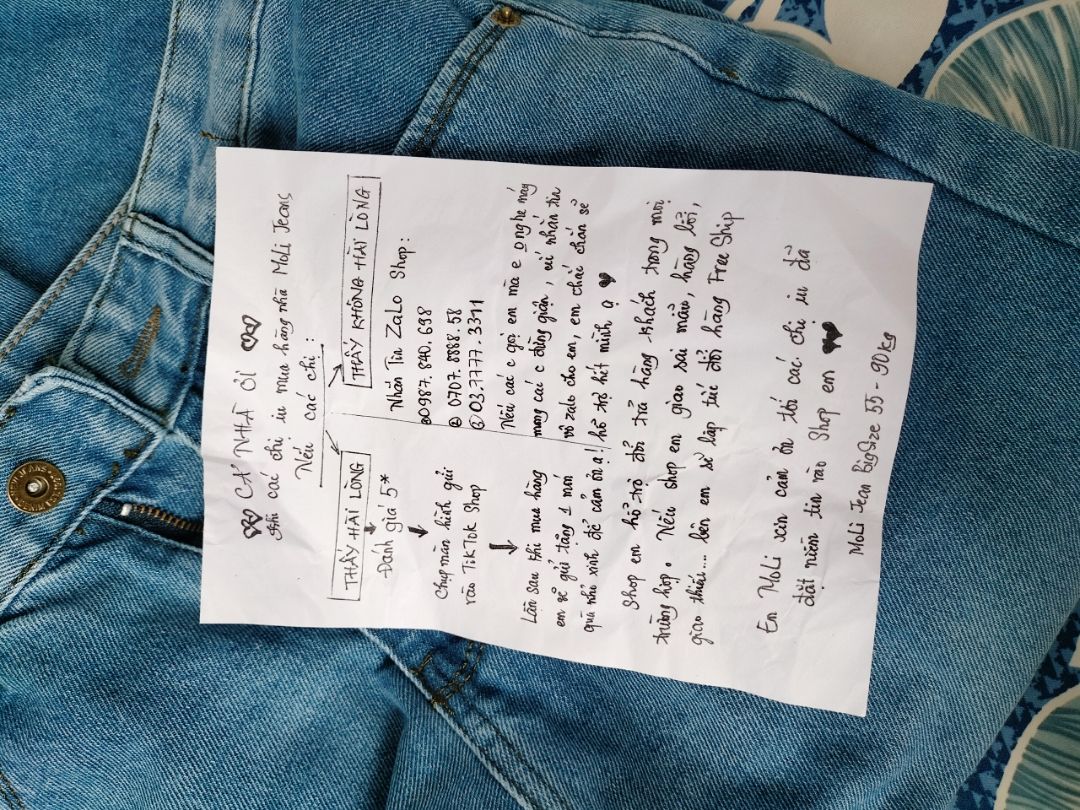 CẢ NHÀ ƠI
Khi các chị iu mua hàng nhà Moli Jeans
Nếu các chị :
THẤY HÀI LÒNG
Đánh giá 5*
Chụp màn hình gửi
vào TikTok Shop
Lần sau khi mua hàng
em sẽ gửi tặng 1 món
quà nhỏ xinh để cảm ơn ạ!
THẤY KHÔNG HÀI LÒNG
Nhắn Tin ZaLo Shop:
① 0987. 840. 698
② 0707. 8888. 58
③ 03.7777. 3311
Nếu các c gọi em mà e 0 nghe máy
mong các c đừng giận, cứ nhắn tin
vô zalo cho em, em chắc chắn sẽ
hỗ trợ hết mình ạ
Shop em hỗ trỡ đổi trả hàng khách trong mọi
trường hợp. Nếu shop em giao sai mẫu, hàng lỗi,
giao thiếu... bên em sẽ lập tức đổi hàng Free Ship
Em MoLi xin cảm ơn tới các chị iu đã
đặt niềm tin vào Shop em
MoLi Jean BigSize 55 - 90kg